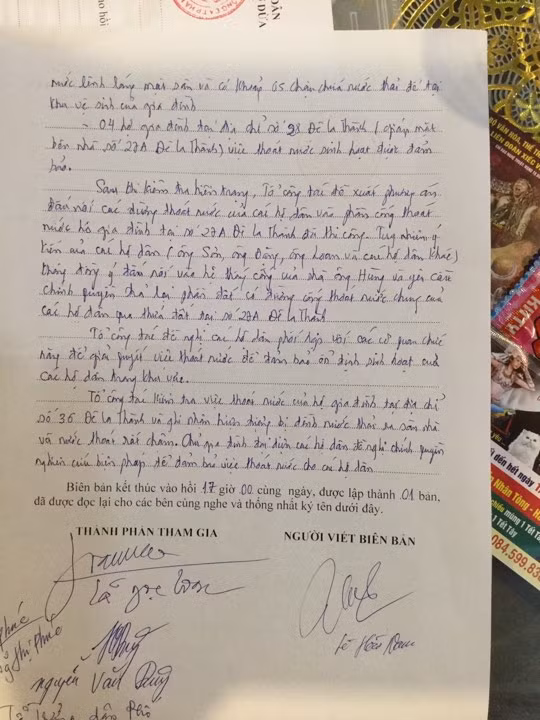 nước lênh láng mặt sân và có khoảng 05 chậu chứa nước thải để tại
khu vệ sinh của gia đình
- 04 hộ gia đình tại địa chỉ số 98 Đê La Thành (giáp mặt
bên nhà số 27A Đê La Thành) việc thoát nước sinh hoạt được đảm
bảo.
Sau khi kiểm tra hiện trạng, Tổ công tác đề xuất phương án
đấu nối các đường thoát nước của các hộ dân vào phần cống thoát
nước hộ gia đình tại số 27A Đê La Thành đã thi công. Tuy nhiên ý
kiến của các hộ dân (ông Sơn, ông Dũng, ông Loan và các hộ dân khác)
không đồng ý đấu nối vào hệ thống cống của nhà ông Hùng và yêu cầu
chính quyền trả lại phần đất có đường cống thoát nước chung của
các hộ dân qua thửa đất tại số 27A Đê La Thành
Tổ công tác đề nghị các hộ dân phối hợp với các cơ quan chức
năng để giải quyết việc thoát nước để đảm bảo ổn định sinh hoạt của
các hộ dân trong khu vực.
Tổ công tác kiểm tra việc thoát nước của hộ gia đình tại địa chỉ
số 36 Đê La Thành và ghi nhận hiện tượng bị đọng nước thải ra sân nhà
và nước thoát rất chậm. Chủ gia đình đại diện các hộ dân đề nghị chính quyền
nghiên cứu biện pháp để đảm bảo việc thoát nước cho các hộ dân
Biên bản kết thúc vào hồi 17 giờ 00 cùng ngày, được lập thành 01 bản,
đã được đọc lại cho các bên cùng nghe và thống nhất ký tên dưới đây.
THÀNH PHẦN THAM GIA
NGƯỜI VIẾT BIÊN BẢN
nguyễn Văn Dũng
Tổ dân phố
DÂN
DỪA
LIÊN ĐOÀN XIẾC
084.599.83